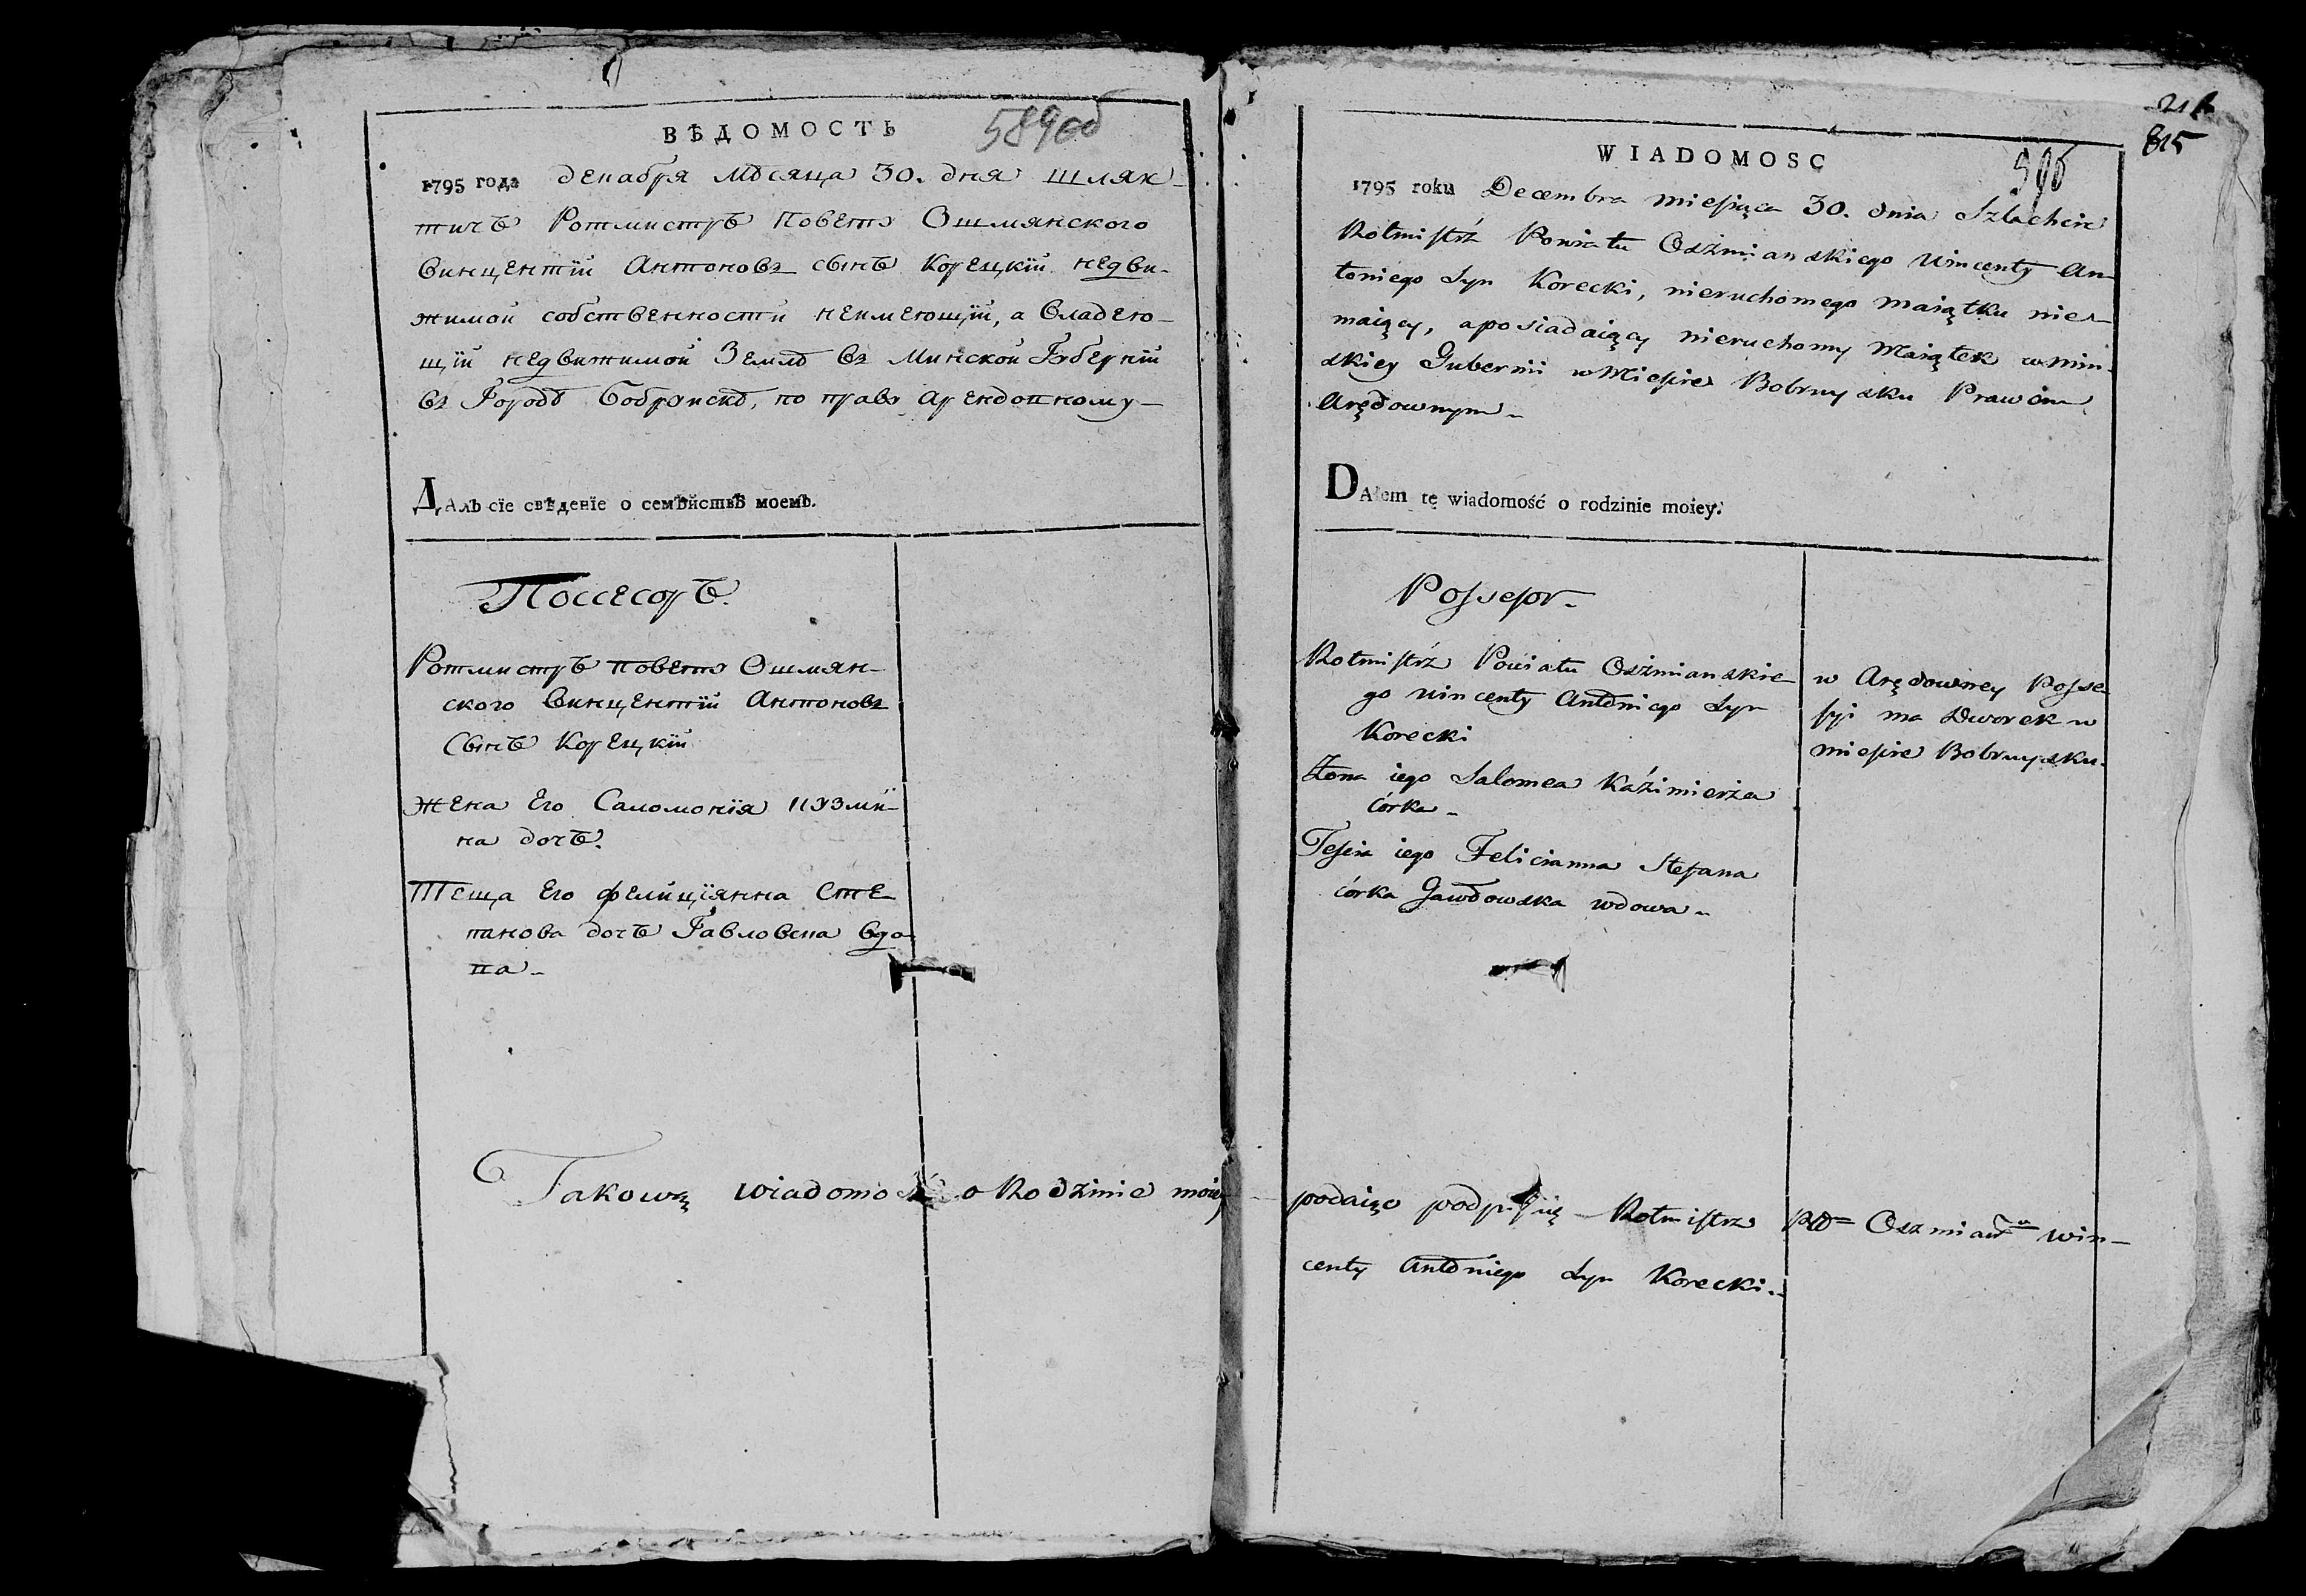 ВѢДОМОСТЬ
589об
1795 года декабря мѣсяца 30. дня шлях-
тичъ Ротмистръ повету Ошмянского
Винцентїй Антоновъ сынъ Корецкїй недви-
жимой собственности неимеющїй, а владею-
щїй недвижимой Землѣ въ Минской Губернїи
въ Городѣ Бобруискѣ, по праву арендовному-
ДАлЪ сїе свѣденїе о семѣйствѣ моемЪ.
Поссесоръ.
Ротмистръ повету Ошмян-
ского Винцентїй Антоновъ
Сынъ Корецкїй
жена Его Саломонїя
на дочъ.
Теща Его Фелицїянна Сте-
панова дочъ вдо-
ва-
Takowę wiadomość o Rodzinie moiey
815
590
WIADOMOSC
1795 roku Decembra miesiąca 30. dnia Szlachcic
Rotmistrz Powiatu Oszmianskiego Wincenty An-
toniego Syn Korecki, nieruchomego maiątku nie-
maiący, a posiadaiący nieruchomy Maiątek w Min-
skiey Gubernii w Mieście Bobruysku Prawem
Arędownym-
DAłem tę wiadomość o rodzinie moiey.
Possesor-
Rotmistrz Powiatu Oszmianskie-
go Wincenty Antoniego Syn
Korecki
Żona iego Salomea Kaźimierza
córka-
Teścia iego Felicianna Stefana
córka Gawdowska wdowa-
w Arędowney Posse-
syi ma Dworek w
mieście Bobruysku.
podaiąc podpisuię Rotmistrz Win-
centy Antoniego Syn Korecki.-